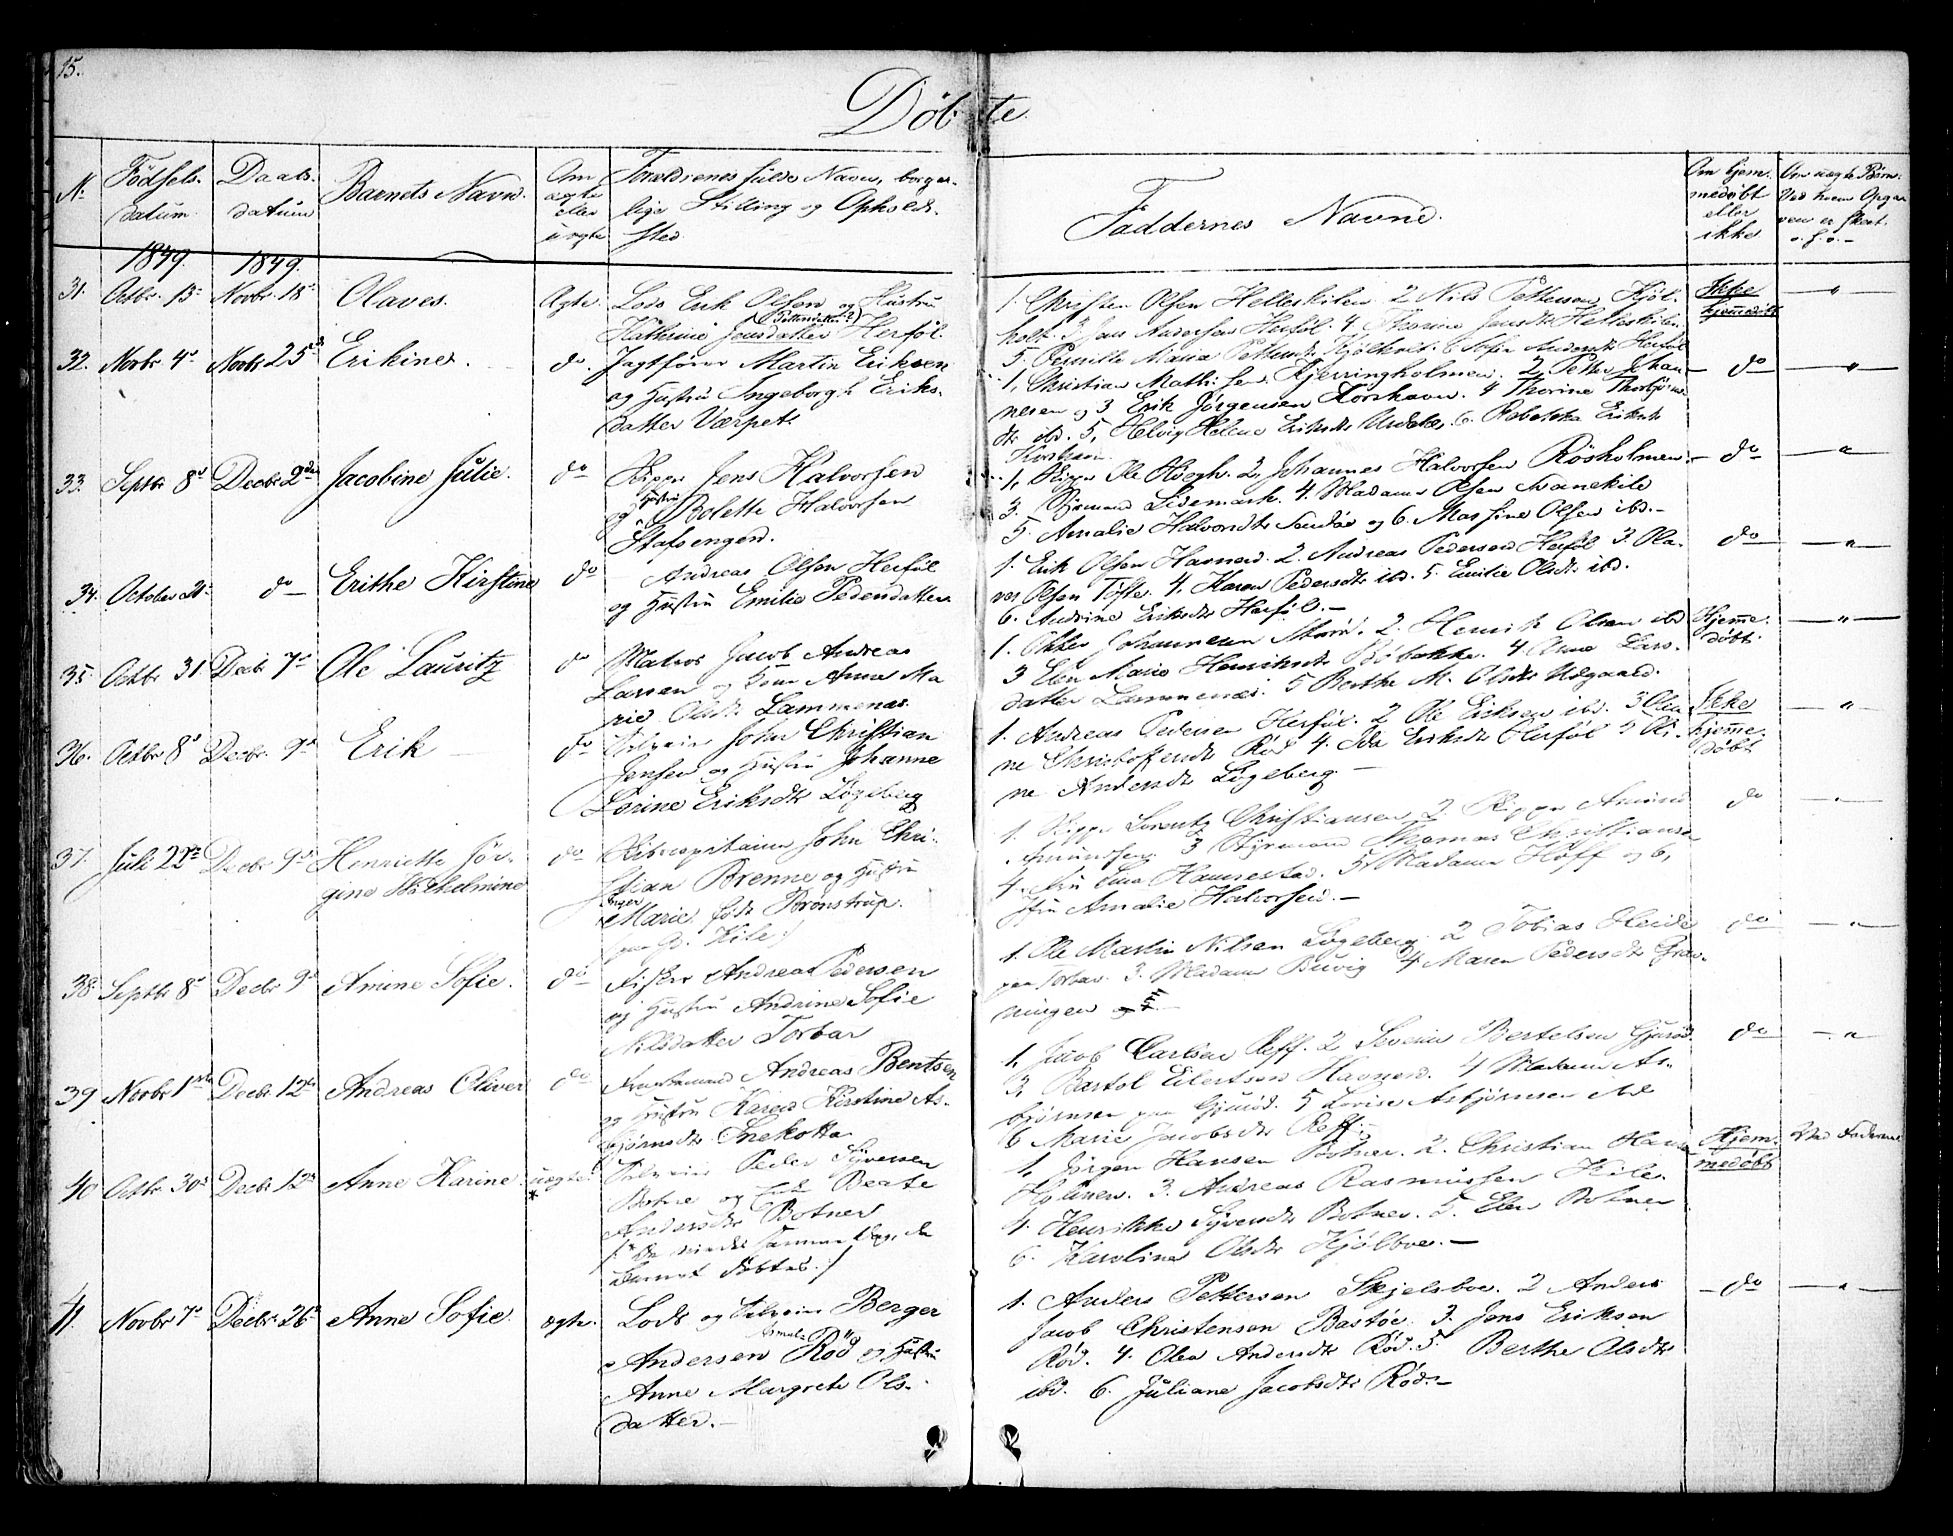 15.
Döbte
N.
Födsels-
datum.
Daabs-
datum
Barnets Navn.
Om
ægte
eller
uægte
Forældrenes fulde Navn, borger-
lige Stilling og Opholds-
sted
Faddernes Navne.
Om hjem-
medøbt
eller
ikke
Om uægte Børn.
Ved hvem Opgav-
ven er skeet.
o. s. v. -
1849. 1849.
31. Octbr. 15 Novbr. 18 Olaves. Ægte. Lods Erik Olsen og Hustru
(Pettersdatter?)
Kathrine Jensdatter Herföl.
1. Christen Olsen Helleskilen 2 Nils Pettersen Kjöl-
holt. 3. Jens Andersen Herföl. 4 Thorine Jensdr Helleskilen
5. Pernille Maria Pettersdr Kjölholt. 6 Sofie Andersdr Herföl
Ikke
hjemdöbt
32. Novbr 4 Novbr 25 Erikine. do. Jagtfører Martin Eriksen
og Hustru Ingeborgh Eriks-
datter Værpet.
1, Christian Mathisen Kjerringholmen. 2, Petter Johan-
nesen og 3 Erik Jörgensen Korshavn. 4 Thorine Thorbjörns-
dr ibd. 5, Helvig Helene Eriksdr 6. Rebekka Eriksdr
Korshavn
do
33. Septbr 8 Decbr 2den Jacobine Julie. do Skipper Jens Halvorsen
og Hustru Bolette Halvorsen
Stafsengen.
1, Skipper Ole Høegh. 2, Johannes Halvorsen Rösholmen.
3. Styrmand Lidemark. 4. Madame Olsen Svanekil
5. Amalie Halvorsdr Sandöe og 6. Massine Olsen ibd.-
do
34. October 21. do Erithe Kirstine do Andreas Olsen Herföl
og Hustru Emilie Pedersdatter
1. Erik Olsen Havnen. 2. Andreas Pedersen Herföl 3. Ola-
ves Olsen Töfte. 4. Karen Pedersdr ibd. 5. Emilie Olsdr ibd.
6. Andrine Eriksdr Herföl.-
do
35. Octbr 31 Decbr 7 Ole Lauritz do Matros Jacob Andreas
Larsen og Kone Anna Ma
rie Olsdr Lammenæs
1. Johannesen 2. Henrik Olsen ibd
3 Elen Marie Henriksdr Böbakke. 4 Anne Lars-
datter Lammenæs. 5 Berthe M. Olsdr
Hjemme-
döbt.
36. Octbr 8 Decbr 9 Erik do Selveier John Christian
Jensen og Hustru Johanne
Lorine Eriksdr Lögeberg
1. Andreas Pedersen Herföl. 2 Ole Eriksen ibd. 3 Olea-
ne Christoffersdr Röd 4. Ida Eriksdr Herföl 5 Oli-
ne Andersdr Lögeberg.-
Ikke
hjemme-
döbt
37. Juli 22 Decbr 9 Henriette Jör-
gine Wilhelmine do Skibscapitaine John Chri-
stian Brenne og Hustru
Inger
Marie född Brönstrup.
Kile
1. Skipper Lorentz Christiansen, 2 Skipper Amund
Amundsen 3 Styrmand Thomas Christiansen
4. Fru Ema Hannestad. 5, Madame Hoff og 6,
Jfru Amalie Halvorsen.-
do
38. Septbr 8 Decbr 9 Amine Sofie. do Fisker Andreas Pedersen
og Hustru Andrine Sofie
Nilsdatter Torbar
1. Ole Martin Nilsen Lögeberg. 2 Tobias Heide
paa Torbar. 3. Madam Buvig 4 Maren Pedersdr Grøn-
ningen
do
39 Novbr 1ste Decbr 12 Andreas Oliver do Andreas Bentsen
og Hustru Karen Kirstine As-
bjørnsdr Snekotta
1, Jacob Carlsen Reff. 2 Severin Bertelsen Gjuröd
3, Bartol Eilertsen Havnen. 4 Madame As-
bjørnsen paa Gjuröd. 5 Lovise Asbjørnsen ibd
6 Marie Jacobsdr Reff.
do
40 Octbr 30 Decbr 12 Anne Karine. uægte.
* Selveier Peder Syversen
Botne og Enke Beate
Andersdr Botner
samme Dag, da
Barnet döbtes.)
1, Jörgen Hansen Botner. 2. Christian Hansen
Holmen. 3. Andreas Rasmussen Kile.
4. Henrikke Syversdr Botner. 5. Elen Botner
6. Karoline Olsdr Kjölboe.-
Hjem-
medöbt
Ved Faderen
41. Novbr 7 Decbr 26 Anne Sofie. ægte. Lods og Selveier Berger
Asmal
Andersen Röd og Hustru
Anne Margrete Ols-
datter.-
1. Anders Pettersen Skjelsboe. 2 Anders
Jacob Christensen Bastöe. 3. Jens Eriksen
Röd. 4. Olea Andersdr Röd. 5. Berthe Olsdr
ibd. 6. Juliane Jacobsdr Röd.-
do